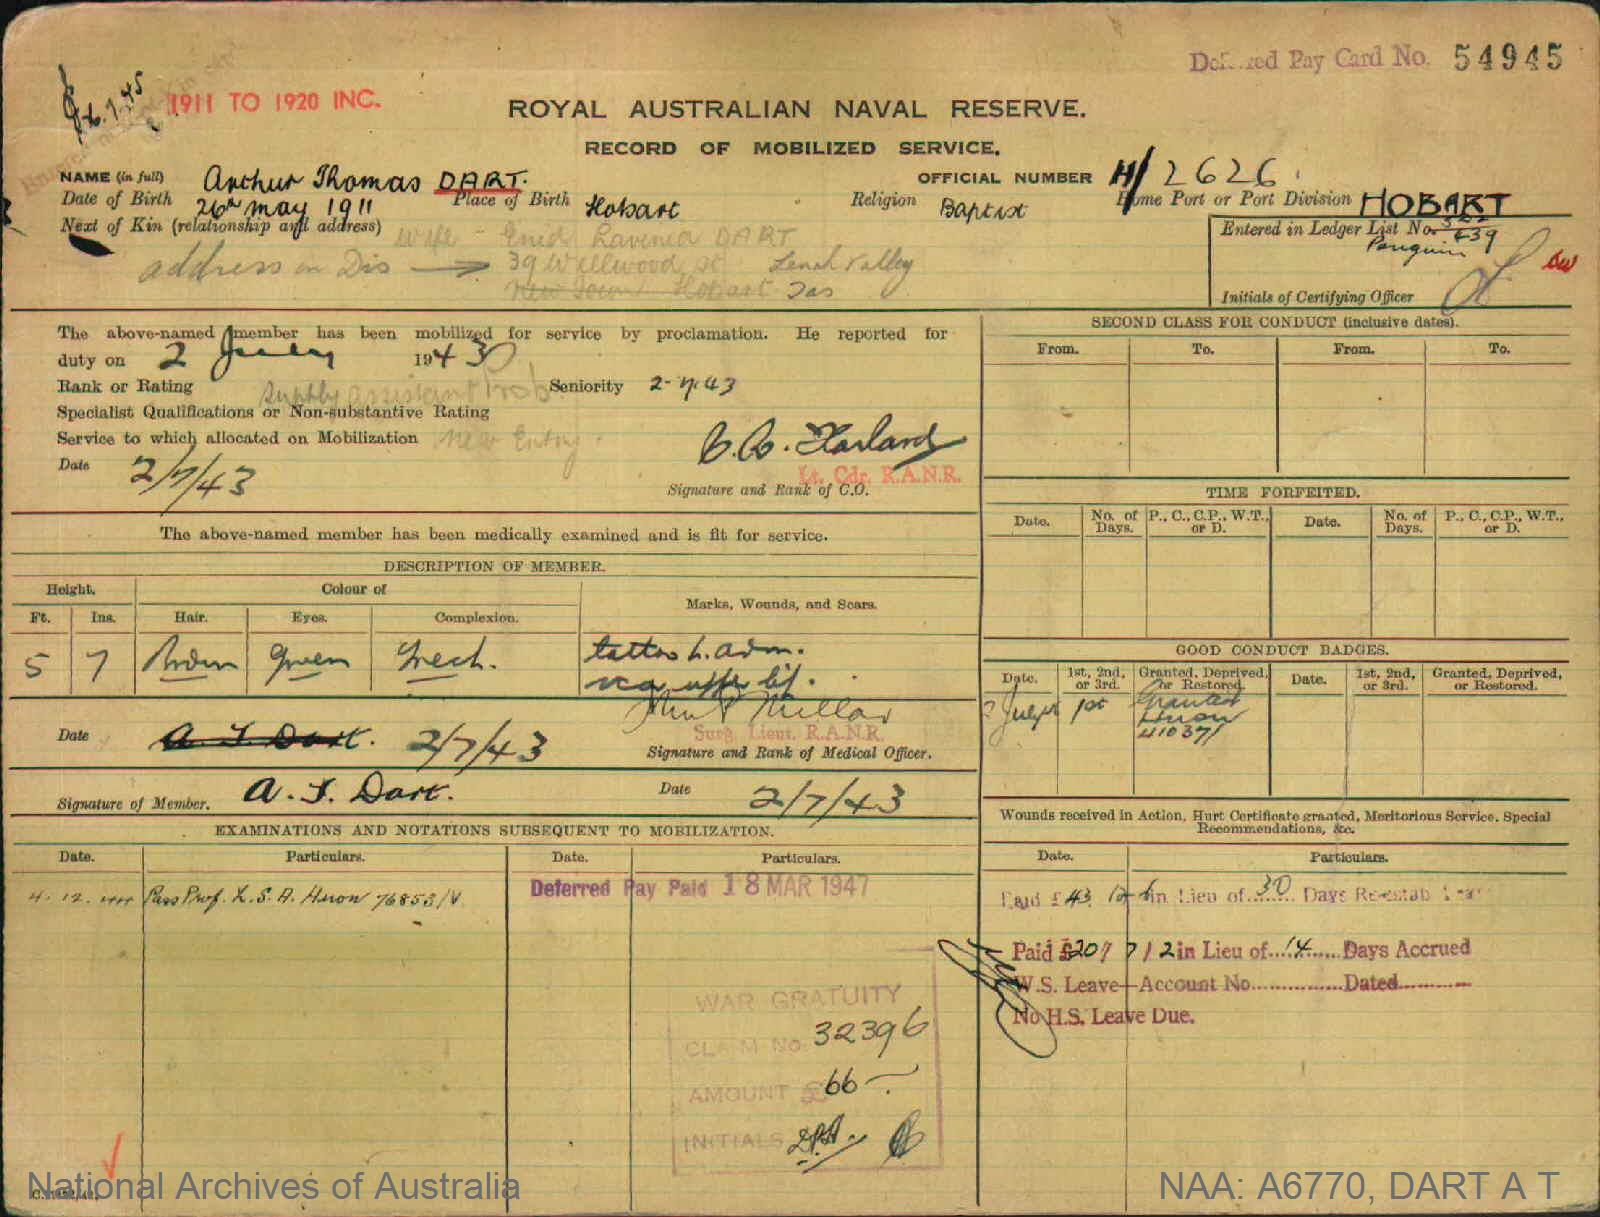 Deferred Pay Card No. 54945
1911 TO 1920 INC.
ROYAL AUSTRALIAN NAVAL RESERVE.
RECORD OF MOBILIZED SERVICE.
NAME (in full) Arthur Thomas DART. OFFICIAL NUMBER H/2626
Date of Birth 26th May 1911 Place of Birth Hobart Religion Baptist Home Port or Port Division HOBART
Next of Kin (relationship and address) wife - Enid Lavenia DART
address on Dis → 39 Wellwood St Lenah Valley
New Town Hobart Tas
Entered in Ledger List No. 439
Penguin
Initials of Certifying Officer
The above-named member has been mobilized for service by proclamation. He reported for
duty on 2 July 1943
Rank or Rating Supply Assistant Prob Seniority 2-7-43
Specialist Qualifications or Non-substantive Rating
Service to which allocated on Mobilization New Entry.
Date 2/7/43
Lt. Cdr. R.A.N.R.
Signature and Rank of C.O.
The above-named member has been medically examined and is fit for service.
DESCRIPTION OF MEMBER.
Height. Colour of Marks, Wounds, and Scars.
Ft. Ins. Hair. Eyes. Complexion.
5 7 Brown Green Fresh. tattoo L. arm.
Date A. T. Dart. 2/7/43
Surg. Lieut. R.A.N.R.
Signature and Rank of Medical Officer.
Signature of Member. A. T. Dart. Date 2/7/43
EXAMINATIONS AND NOTATIONS SUBSEQUENT TO MOBILIZATION.
Date. Particulars. Date. Particulars.
4.12.44 Pass Prof. L.S.A. Huon 76853/V
Deferred Pay Paid 18 MAR 1947
WAR GRATUITY
CLAIM No 32396
AMOUNT £ 66
INITIALS
SECOND CLASS FOR CONDUCT (inclusive dates).
From. To. From. To.
TIME FORFEITED.
Date. No. of Days. P., C., C.P., W.T., or D. Date. No. of Days. P., C., C.P., W.T., or D.
GOOD CONDUCT BADGES.
Date. 1st, 2nd, or 3rd. Granted, Deprived, or Restored. Date. 1st, 2nd, or 3rd. Granted, Deprived, or Restored.
July 1st Granted
Huon
410371
Wounds received in Action, Hurt Certificate granted, Meritorious Service, Special
Recommendations, &c.
Date. Particulars.
Paid £43 12 6 in Lieu of 30 Days Re-estab Leave
Paid £20/7/2 in Lieu of 14 Days Accrued
W.S. Leave—Account No. Dated
No H.S. Leave Due.
National Archives of Australia
NAA: A6770, DART A T